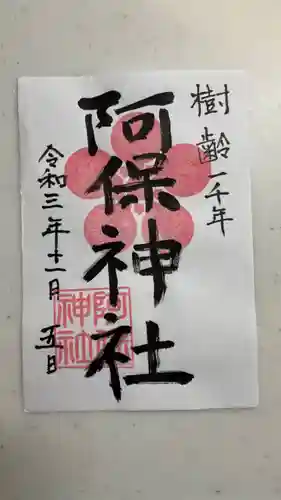 樹齢一千年
阿保神社
令和三年十一月五日
阿保神社